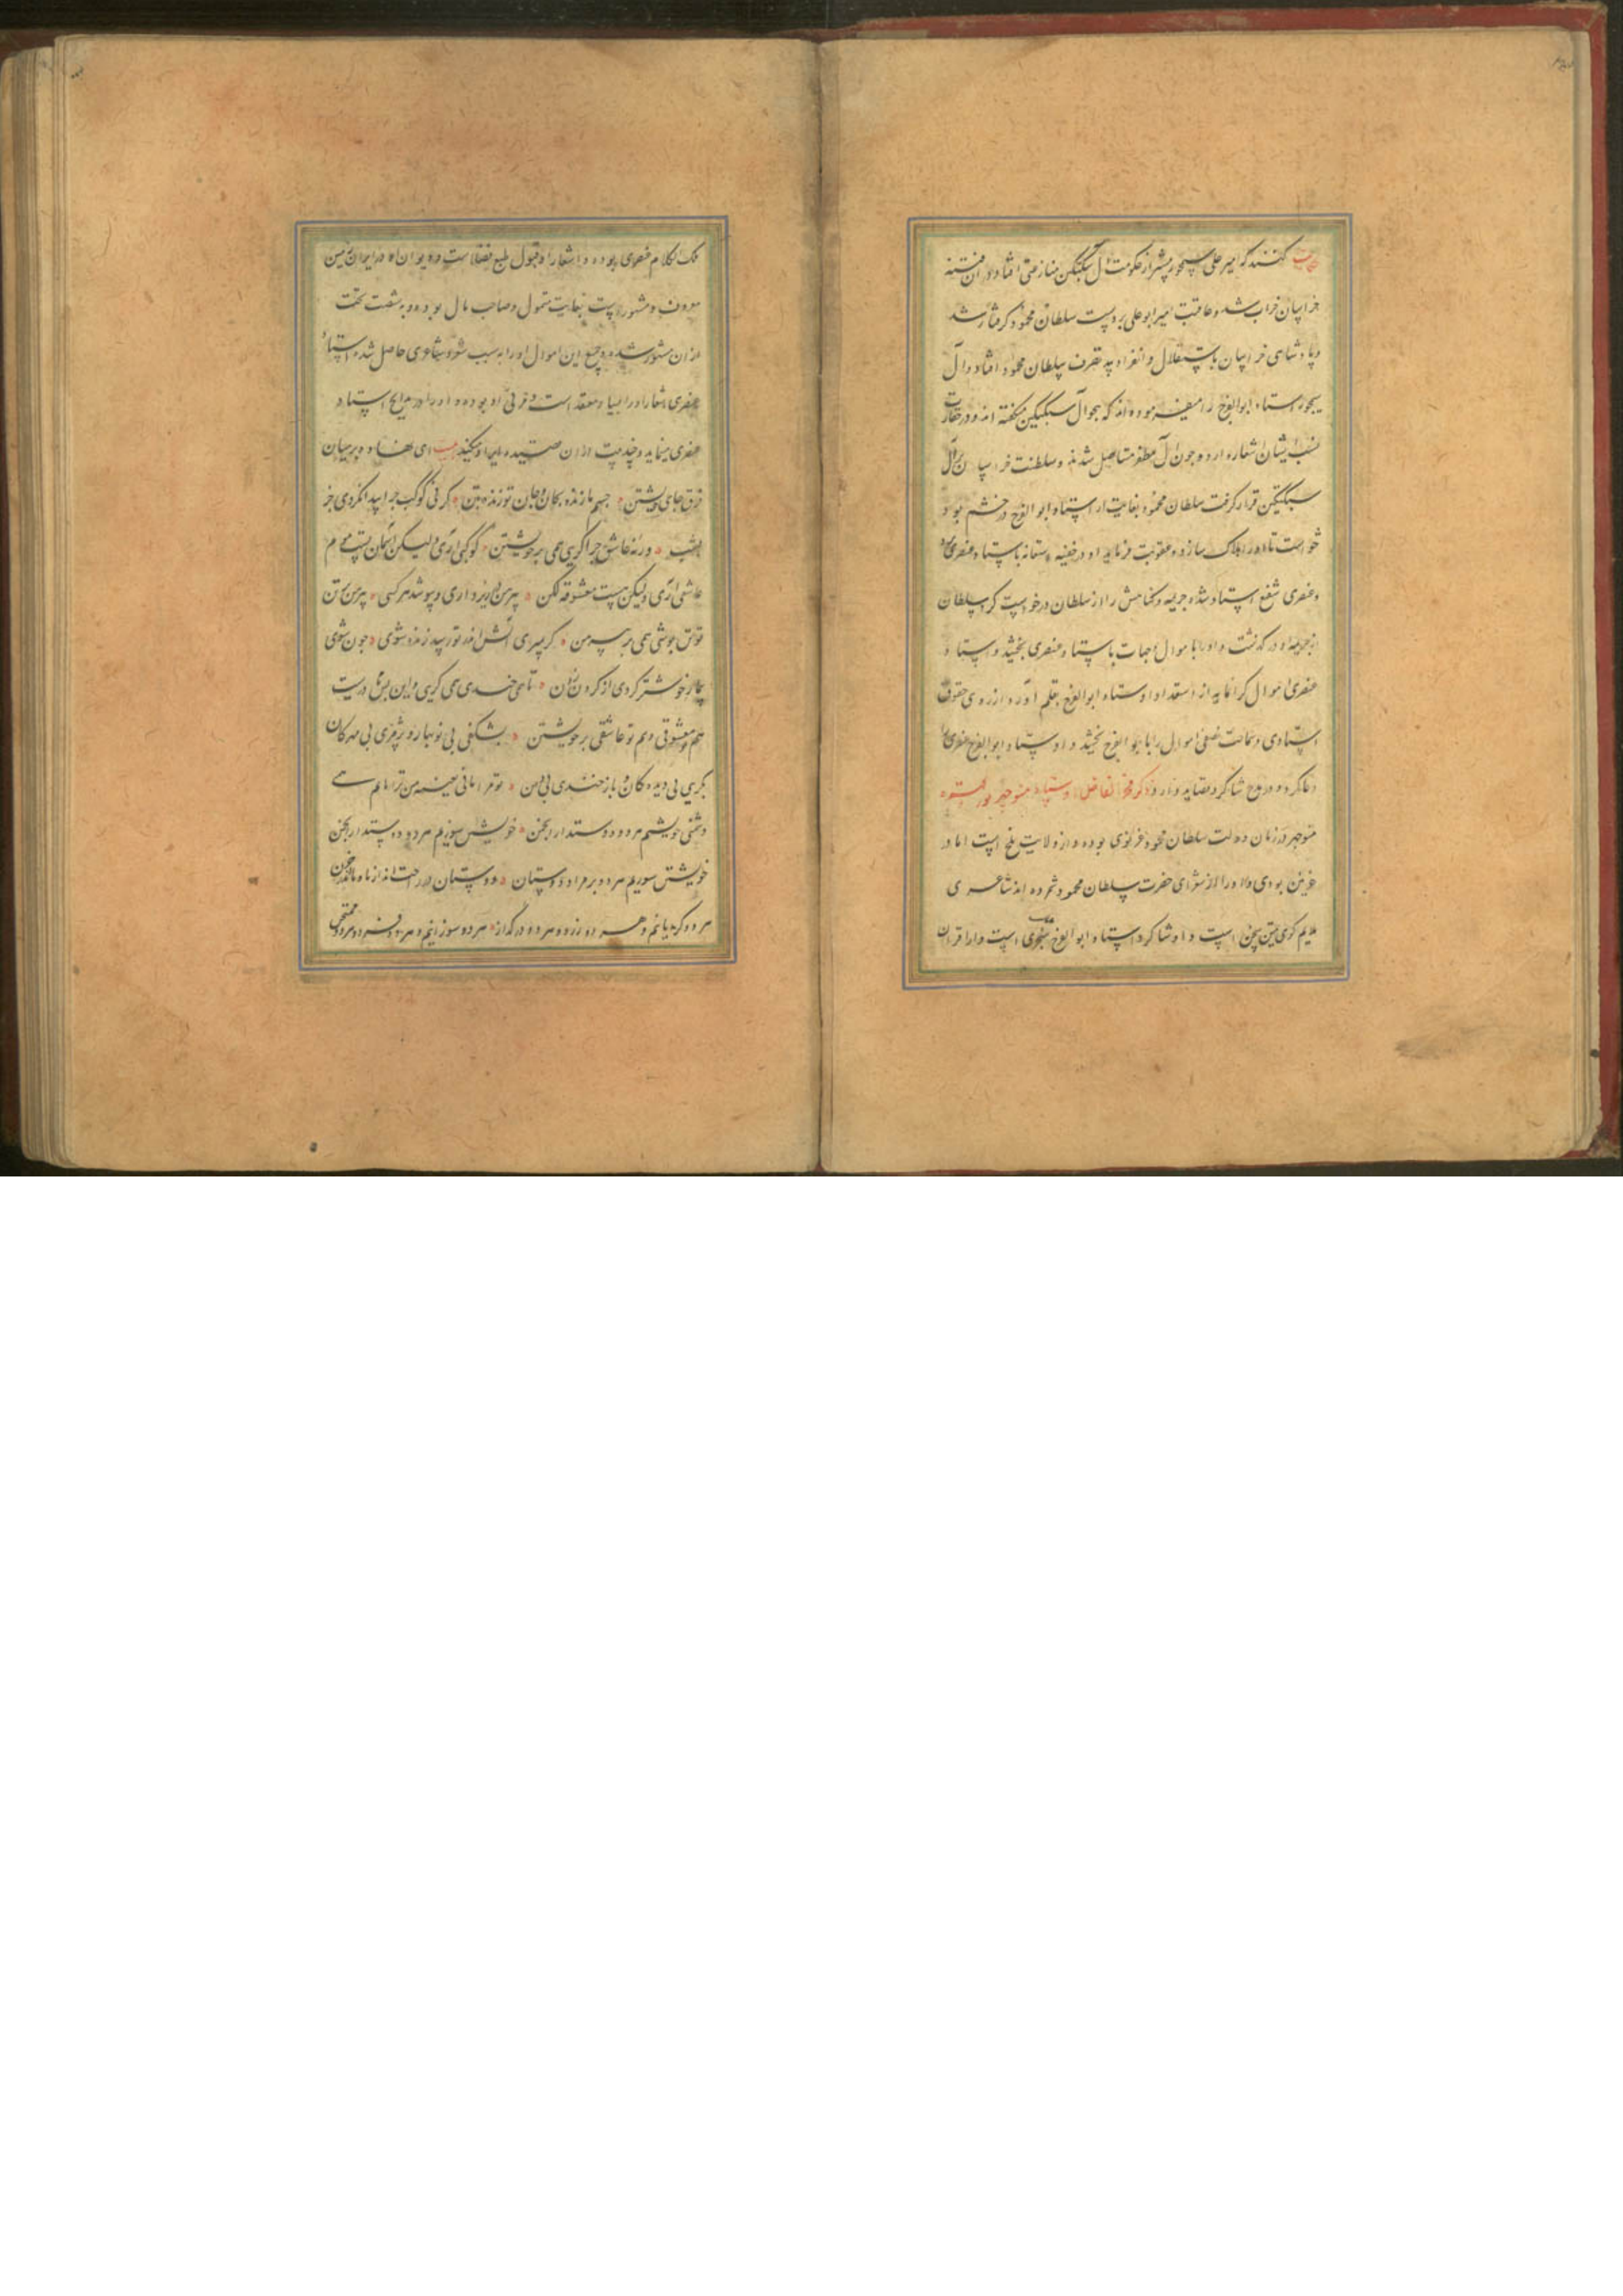 حکایت کنند که امیر علی سیمجور پیش از حکومت آل سبکتکین منازعتی افتاد و در آن فتنه
خراسان خراب شد و عاقبت امیر ابو علی بر دست سلطان محمود گرفتار شد
و پادشاهی خراسان باستقلال و انفراد به تصرف سلطان محمود افتاد و آل
سیمجور استاد ابوالفرج را میفرموده اند که هجو آل سبکتکین میگفته اند و در حقارت
نسب ایشان اشعار دارد و چون آل مظفر متاصل شدند و سلطنت خراسان بر آل
سبکتکین قرار گرفت سلطان محمود بغایت از استاد ابو الفرج در خشم بود و
خواست تا او را هلاک سازد و عقوبت فرماید او در خفیه استعانه باستاد عنصری
و عنصری شفیع استاد شده جریمه و گناهش را از سلطان درخواست کرد سلطان
از جریمه او در گذشت و او را با اموال و جهات باستاد عنصری بخشید و استاد
عنصری اموال گرانمایه از استعداد استاد ابوالفرج بقلم آورد و از روی حقوق
استادی و سماحت نصفی اموال را با ابو الفرج بخشید و استاد ابو الفرج عنصری را
دعا کرد و در مدح شاگرد قصاید دارد ذکر فخر الفاضل استاد منوچهر
منوچهر در زمان دولت سلطان محمود غزنوی بوده و از ولایت بلخ است اما در
غزنین بودی و او را از شعرای حضرت سلطان محمود شمرده اند شاعری
ملایم گوی متین سخن است و او شاگرد استاد ابو الفرج سنجری است و از اقران
ملک الکلام عنصری بوده و اشعار او قبول طبع فضلاست و دیوان او در ایران زمین
معروف و مشهور است بغایت متمول و صاحب مال بوده و به شصت کله
از آن مشهور شده و جمع این اموال او را به سبب شعر و شاعری حاصل شده استاد
عنصری اشعار او را بسیار معتقد است و مربی او بوده و او را در مدایح استاد
عنصری مینماید و چند بیت از آن قصیده ایراد میکنیم بیت ای نهاده بر میان
فرق جان خویشتن جسم ما زنده بجان و جان تو زنده بتن گر نئی کوکب چرا پیدا نکردی جز
بشب ور نه عاشق چرا گریی همی بر خویشتن کوکبی آری ولیکن آسمان تست موم
عاشقی آری ولیکن هست معشوقه لگن پیرهن در زیر داری و پوشد هر کسی پیرهن بر تن
تو تن پوشی همی بر پیرهن گر بمیری آتش اندر تو رسد زنده شوی چون شوی
بیمار خوشتر گردی از گردن زدن تا همی خندی همی گریی و این بس نادرست
هم تو معشوقی و هم تو عاشقی بر خویشتن بشکفی بی نوبهار و پژمری بی مهرگان
بگریی بی دیدگان و باز خندی بی دهن تو مرا مانی بعینه من ترا مانم همی
دشمنی خویشیم هر دو دوستدار انجمن خویشتن سوزیم هر دو دوستدار انجمن
خویشتن سوزیم هر دو بر مراد دوستان دوستان در راحت اند از ما و ما اندر حزن
هر دو گریانیم و هر دو زرد و هر دو در گداز هر دو سوزانیم و هر دو فرد و هر دو ممتحن